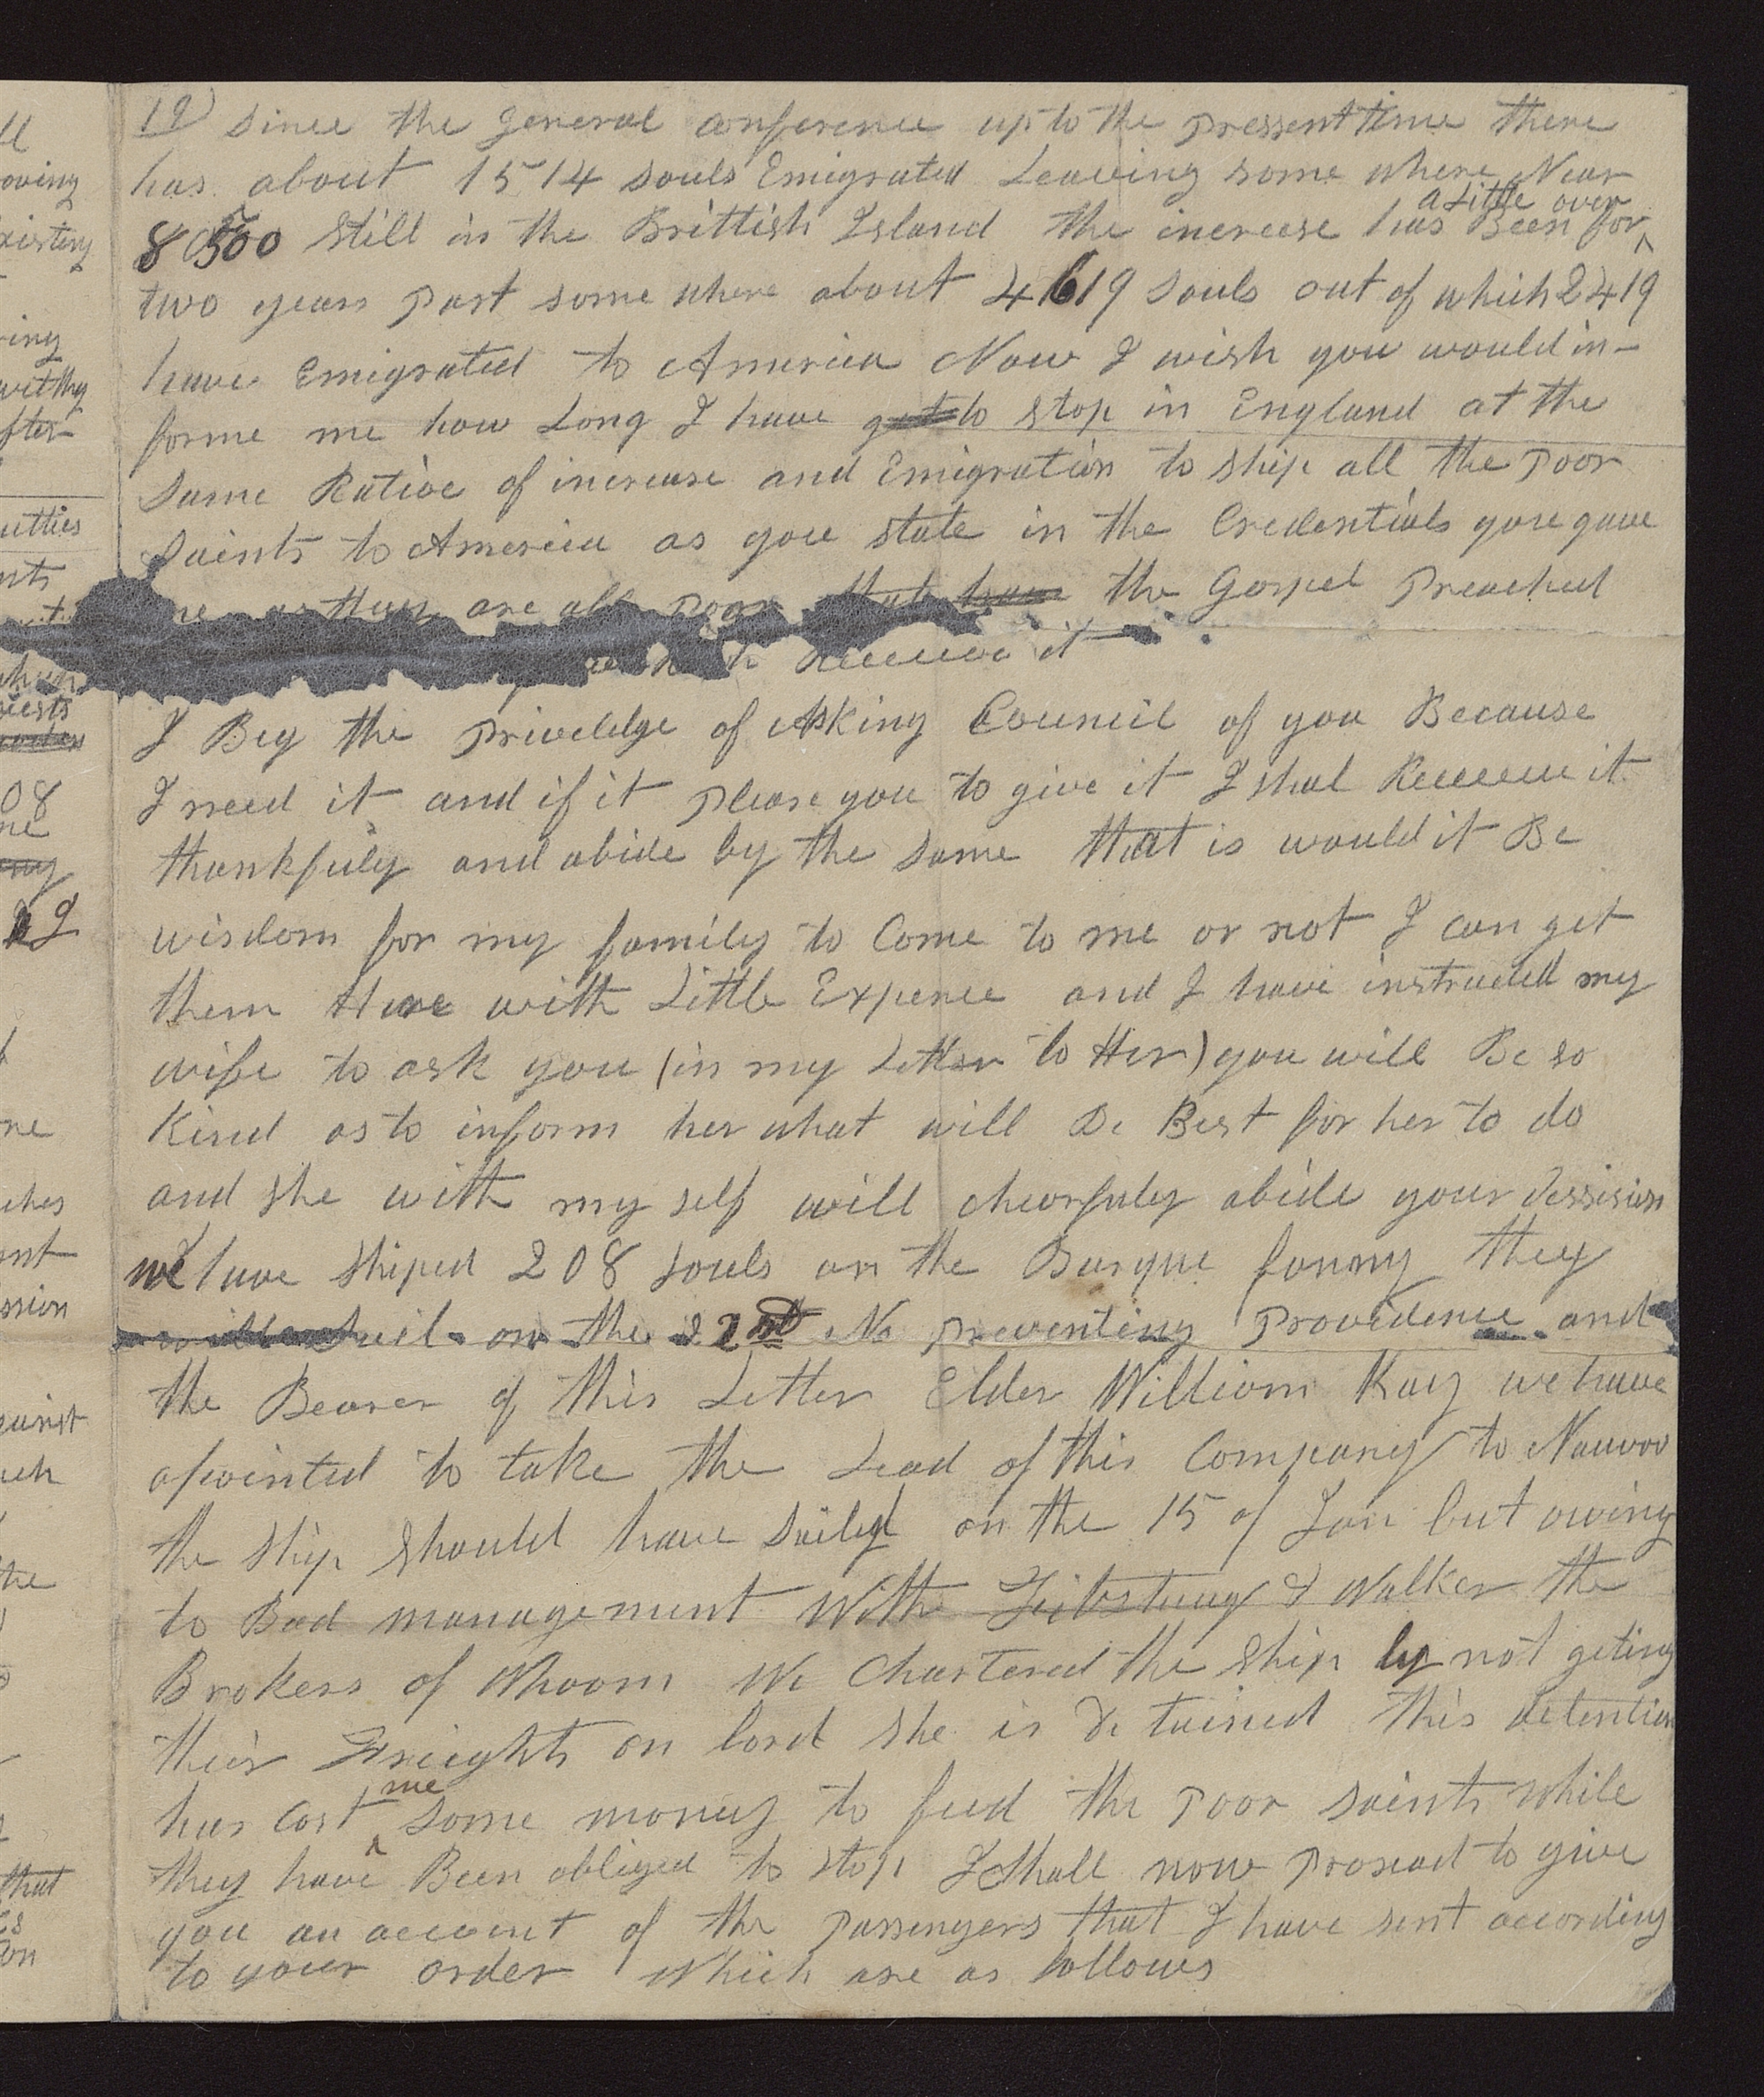 19) Since the general conference up to the pressent time there
has about 1514 souls Emigrated Leaveing some where Near
8500 still in the Brittish Island the increese has Been for a Little over
two years past some where about 4619 souls out of which 2419
have Emigrated to America Now I wish you would in-
forme me how Long I have got to stop in England at the
same Ratioe of increase and Emigration to ship all the poor
saints to America as you state in the Credentials you gave
me as they are all poor that have the Gospel Preached
Receieve it
I Beg the privelidge of Asking Council of you Because
I need it and if it please you to give it I shal Receieve it
thankfuly and abide by the same that is would it Be
wisdom for my family to Come to me or not I can git
them Here with Little Expence and I have instructed my
wife to ask you (in my Letter to Her) you will Be so
Kind as to inform her what will Be Best for her to do
and she with my self will chearfuly abide your dessision
we have shiped 208 souls on the Barque fanny they
will sail on the 22nd No preventing Providence and
the Bearer of this Letter Elder William Kay we have
apointed to take the Lead of this Company to Nauvoo
the ship should have sailed on the 15 of Jan but owing
to Bad management With & Walker the
Brokers of Whoom We Chartered the Ship by not geting
their Frieghts on bord she is detained this detention
has Cost me some money to feed the poor saints while
they have Been obliged to stop I shall now prosead to give
you an account of the passengers that I have sent according
to your order which are as follows